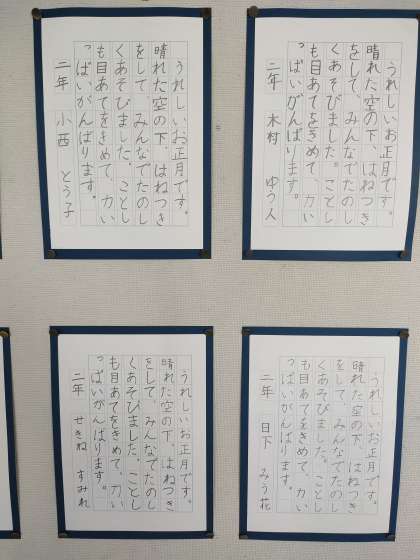 うれしいお正月です。
晴れた空の下、はねつき
をして、みんなでたのし
くあそびました。ことし
も目あてをきめて、力い
っぱいがんばります。
二年 小西 とう子
うれしいお正月です。
晴れた空の下、はねつき
をして、みんなでたのし
くあそびました。ことし
も目あてをきめて、力い
っぱいがんばります。
二年 木村 ゆう人
うれしいお正月です。
晴れた空の下、はねつき
をして、みんなでたのし
くあそびました。ことし
も目あてをきめて、力い
っぱいがんばります。
二年 せきね すみれ
うれしいお正月です。
晴れた空の下、はねつき
をして、みんなでたのし
くあそびました。ことし
も目あてをきめて、力い
っぱいがんばります。
二年 日下 みう花